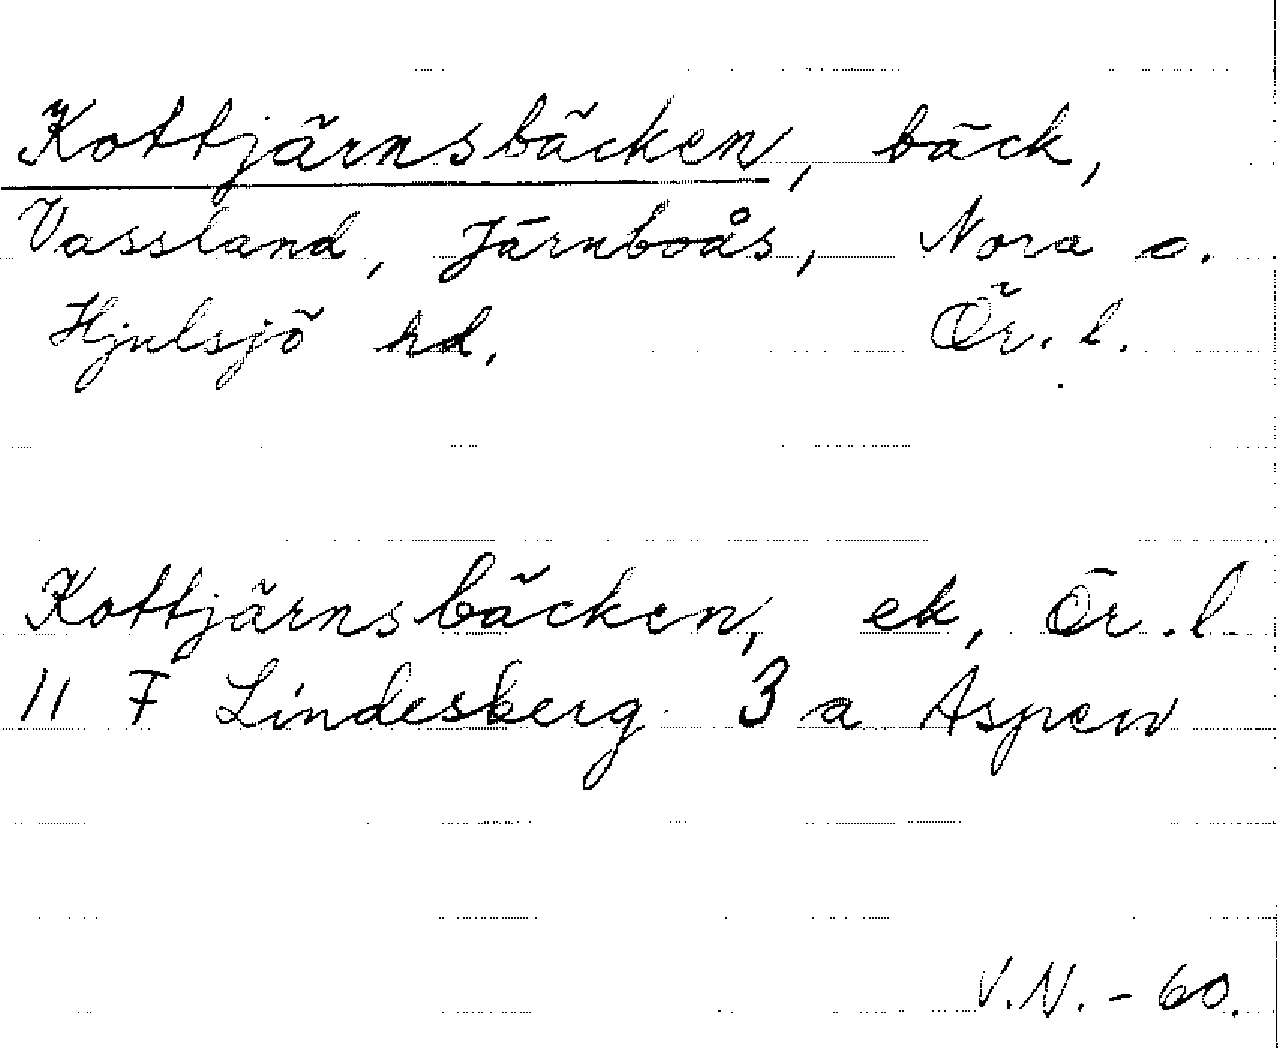 Kottjärnsbäcken, bäck,
Vassland, Järnboås, Nora o.
Hjulsjö hd. Ör. l.
Kottjärnsbäcken, ek, Ör. l.
11 F Lindesberg 3 a Aspen
V.N. - 60.